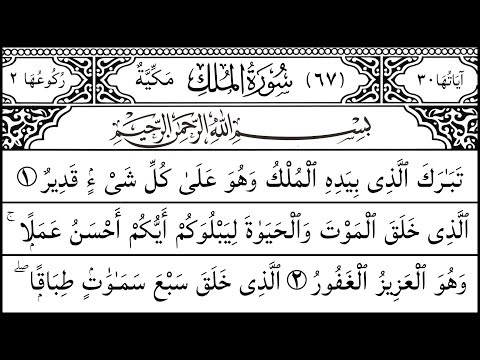 اٰيَاتُهَا ٣٠ (٦٧) سُوۡرَةُ الۡمُلۡكِ مَكِّيَّةٌ رُكُوۡعُهَا ٢
بِسۡمِ اللّٰهِ الرَّحۡمٰنِ الرَّحِيۡمِ
تَبَـٰرَكَ ٱلَّذِى بِيَدِهِ ٱلۡمُلۡكُ وَهُوَ عَلَىٰ كُلِّ شَىۡءٍ قَدِيرٌ ١
ٱلَّذِى خَلَقَ ٱلۡمَوۡتَ وَٱلۡحَيَوٰةَ لِيَبۡلُوَكُمۡ أَيُّكُمۡ أَحۡسَنُ عَمَلًاۚ
وَهُوَ ٱلۡعَزِيزُ ٱلۡغَفُورُ ٢ ٱلَّذِى خَلَقَ سَبۡعَ سَمَـٰوَٰتٍ طِبَاقًاۖ